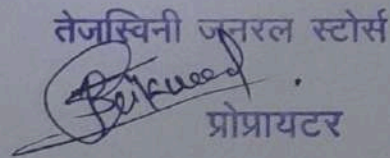 तेजस्विनी जनरल स्टोर्स
प्रोप्रायटर